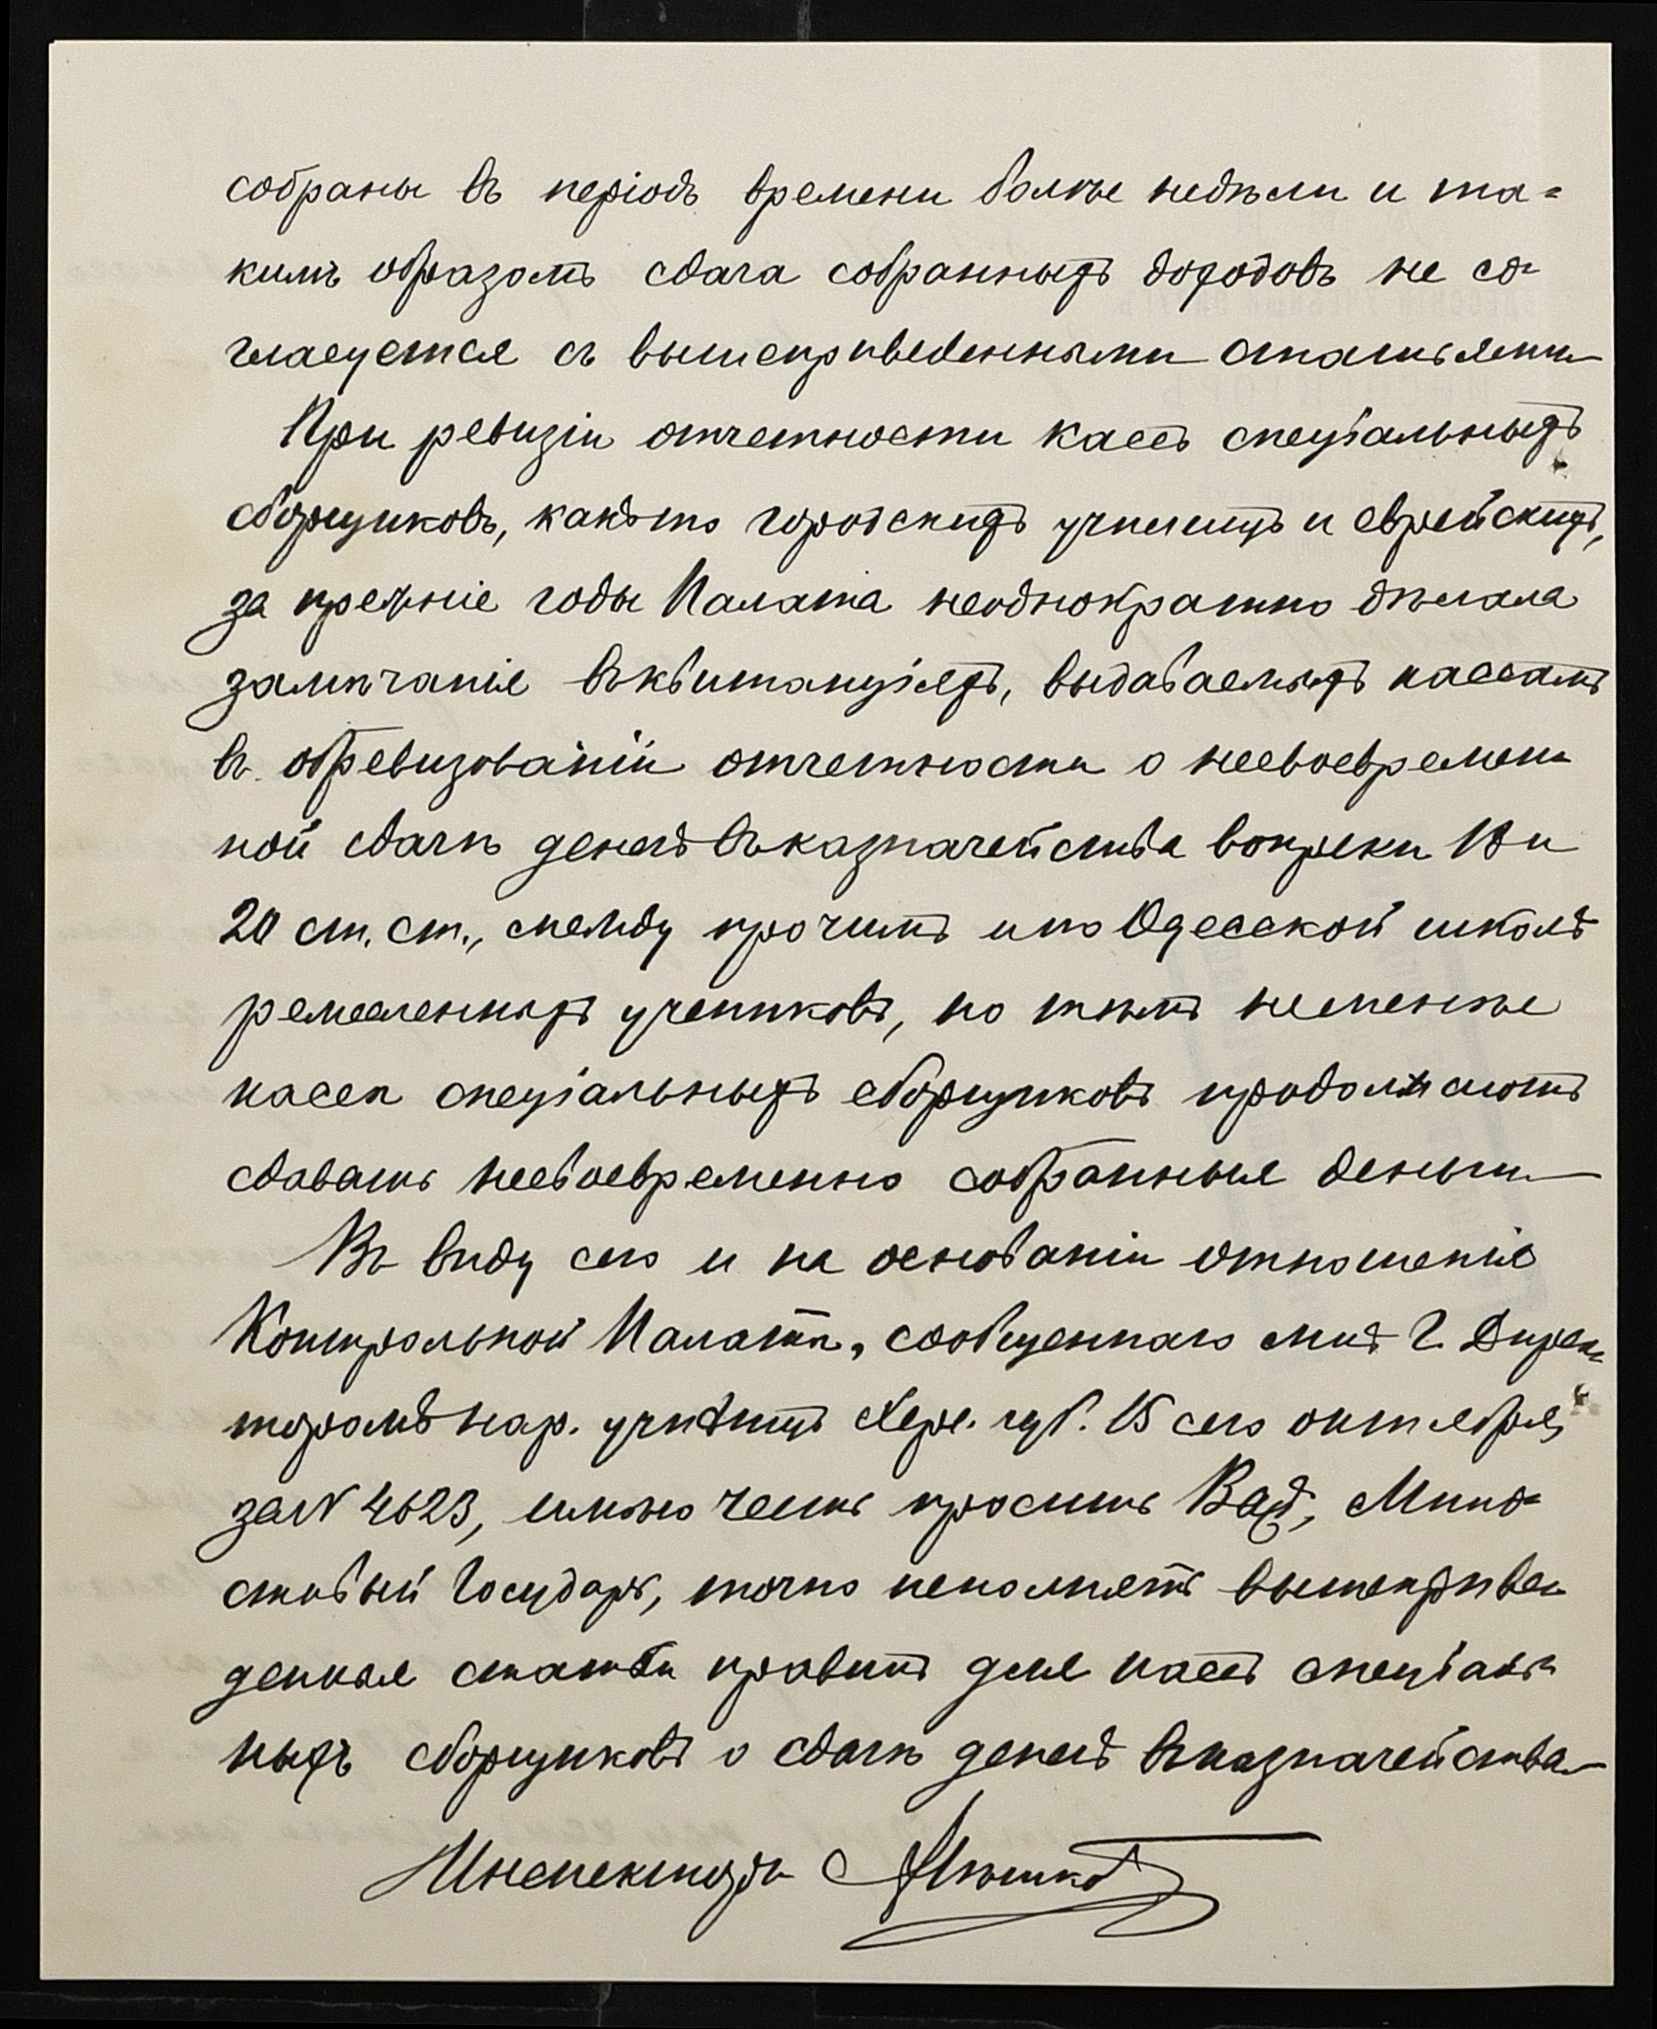 собраны въ періодъ времени болѣе недѣли и та=
кимъ образомъ сдача собранныхъ доходовъ не со=
гласуется съ вышеприведенными статьями
При ревизіи отчетности кассъ спеціальныхъ
сборщиковъ, какъ то городскихъ училищъ и еврейскихъ,
за прежніе годы Палата неоднократно дѣлала
замѣчанія въ квитанціяхъ, выдаваемыхъ кассамъ
въ обревизованіи отчетности о несвоевремен=
ной сдачѣ денегъ въ казначейства вопреки 18 и
20 ст. ст., между прочимъ и по Одесской школѣ
ремесленныхъ учениковъ, но тѣмъ не менѣе
кассы спеціальныхъ сборщиковъ продолжаютъ
сдавать несвоевременно собранныя деньги
Въ виду сего и на основаніи отношенія
Контрольной Палаты, сообщеннаго мнѣ Г. Дирек=
торомъ нар. училищъ Херс. губ. 15 сего октября
за N 4623, имѣю честь просить Васъ, Мило=
стивый Государь, точно исполнять вышеприве=
денныя статьи правилъ для кассъ спеціаль=
ныхъ сборщиковъ о сдачѣ денегъ въ казначейства
Инспекторъ